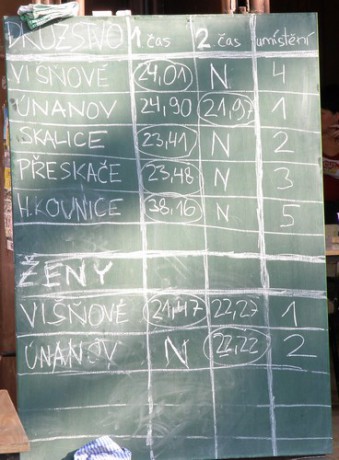 DRUŽSTVO 1 čas 2 čas umístění
VIŠŇOVÉ 24,01 N 4
ÚNANOV 24,90 21,97 1
SKALICE 23,41 N 2
PŘESKAČE 23,48 N 3
H.KOUNICE 38,16 N 5
ŽENY
VIŠŇOVÉ 21,47 22,27 1
ÚNANOV N 22,22 2